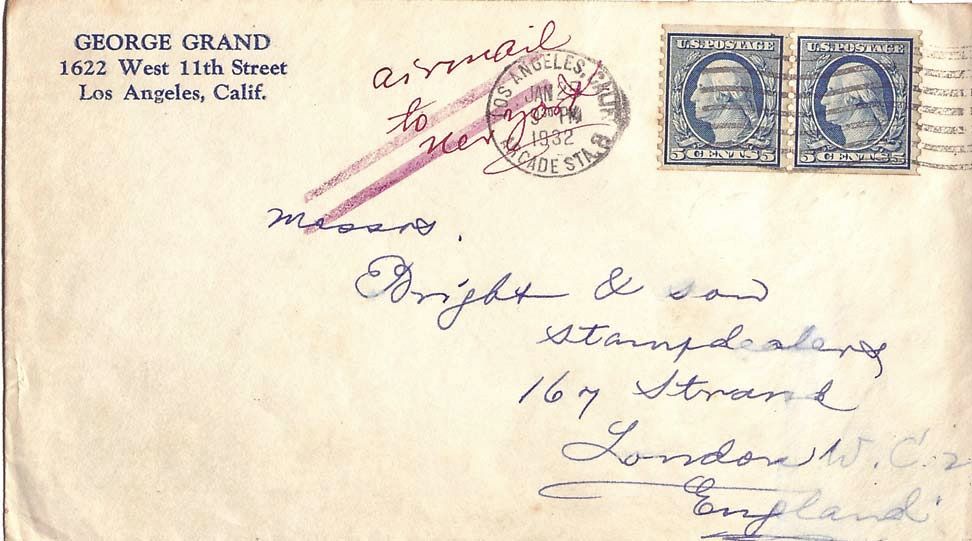 GEORGE GRAND
1622 West 11th Street
Los Angeles, Calif.
airmail
to
new york
LOS ANGELES, CALIF.
JAN 27
PM
1932
ARCADE STA.
U.S. POSTAGE
5 CENTS 5
U.S. POSTAGE
5 CENTS 5
Messrs.
Bright & son
Stampdealers
167 Strand
London W.C. 2
England